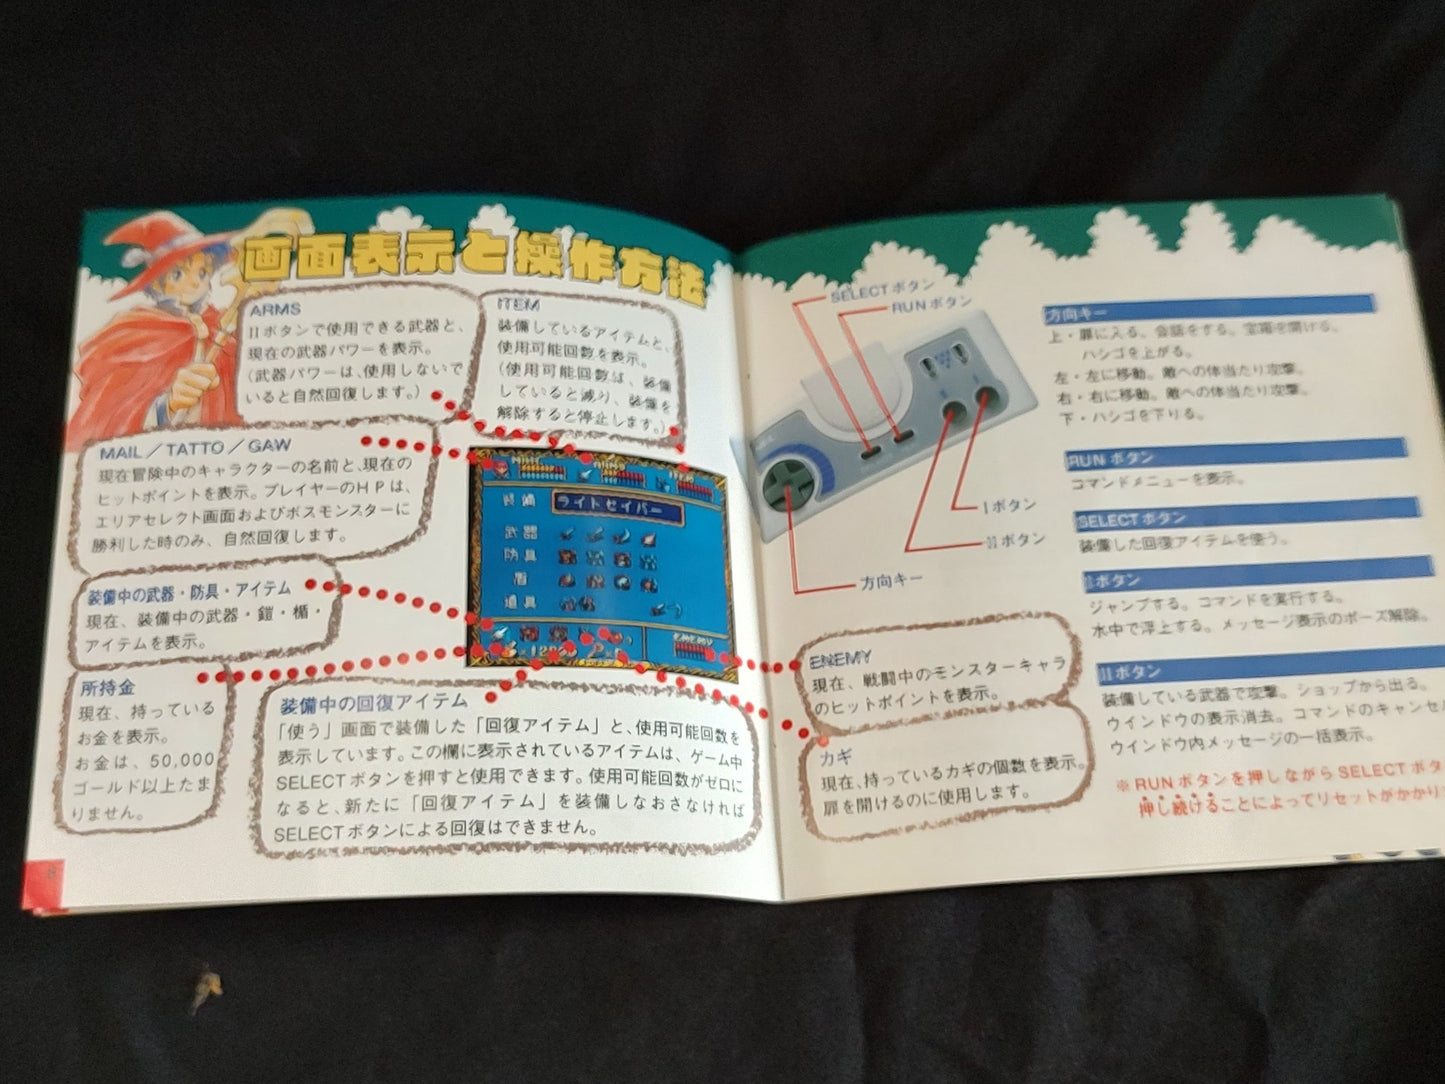 画面表示と操作方法
ARMS
IIボタンで使用できる武器と、
現在の武器パワーを表示。
(武器パワーは、使用しないで
いると自然回復します。)
ITEM
装備しているアイテムと、
使用可能回数を表示。
(使用可能回数は、装備
していると減り、装備を
解除すると停止します。)
MAIL/TATTO/GAW
現在冒険中のキャラクターの名前と、現在の
ヒットポイントを表示。プレイヤーのHPは、
エリアセレクト画面およびボスモンスターに
勝利した時のみ、自然回復します。
装備中の武器・防具・アイテム
現在、装備中の武器・鎧・楯・
アイテムを表示。
所持金
現在、持っている
お金を表示。
お金は、50,000
ゴールド以上たま
りません。
装備中の回復アイテム
「使う」画面で装備した「回復アイテム」と、使用可能回数を
表示しています。この欄に表示されているアイテムは、ゲーム中
SELECTボタンを押すと使用できます。使用可能回数がゼロに
なると、新たに「回復アイテム」を装備しなおさなければ
SELECTボタンによる回復はできません。
ARMS
ITEM
装備
ライトセイバー
武器
防具
盾
道具
ENEMY
SELECTボタン
RUNボタン
Iボタン
IIボタン
方向キー
ENEMY
現在、戦闘中のモンスターキャラ
のヒットポイントを表示。
カギ
現在、持っているカギの個数を表示。
扉を開けるのに使用します。
方向キー
上・扉に入る。会話をする。宝箱を開ける。
ハシゴを上がる。
左・左に移動。敵への体当たり攻撃。
右・右に移動。敵への体当たり攻撃。
下・ハシゴを下りる。
RUNボタン
コマンドメニューを表示。
SELECTボタン
装備した回復アイテムを使う。
Iボタン
ジャンプする。コマンドを実行する。
水中で浮上する。メッセージ表示のポーズ解除。
IIボタン
装備している武器で攻撃。ショップから出る。
ウインドウの表示消去。コマンドのキャンセル
ウインドウ内メッセージの一括表示。
※RUNボタンを押しながらSELECTボタ
押し続けることによってリセットがかかり
8